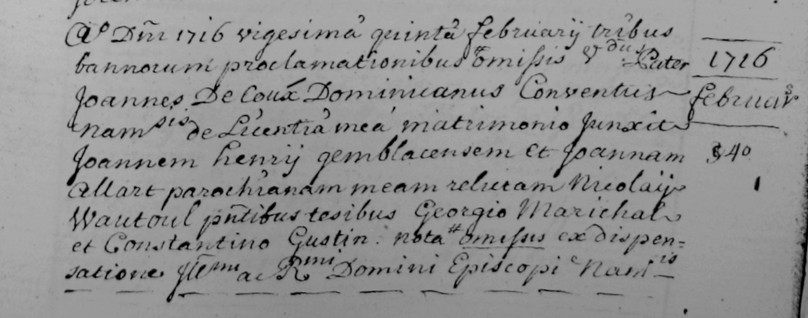 A° Dm̄ 1716 vigesimâ quintâ februarij tribus
bannorum proclamationibus omissis Vdus Pater
Joannes De Coux Dominicanus Conventus
namsis de Licentiâ meâ matrimonio Junxit
Joannem henrij gemblacensem et Joannam
Allart parochianam meam relictam Nicolaij
Wautoul pñtibus tesibus Georgio Marichal
et Constantino Gustin. nota omissis ex dispen=
satione Illmi ac Rmi Domini Episcopi Namis
1716
februar
40
1